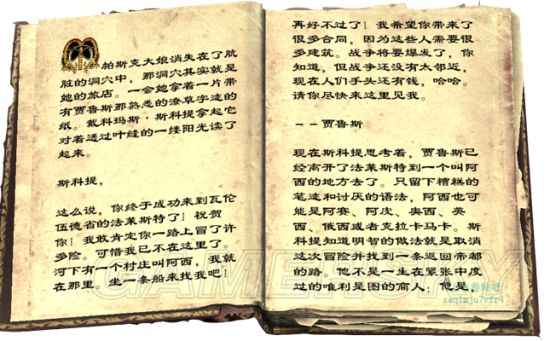 帕斯克大娘消失在了肮
脏的洞穴中，那洞穴其实就是
她的旅店。一会她拿着一片带
有贾鲁斯那熟悉的潦草字迹的
纸。戴科玛斯·斯科提拿起它
对着透过叶缝的一缕阳光读了
起来。
斯科提，
这么说，你终于成功来到瓦伦
伍德省的法莱斯特了！祝贺
你！我敢肯定你一路上冒了许
多险。可惜我已不在这里了。
河下有一个村庄叫阿西，我就
在那里。坐一条船来找我吧！
再好不过了！我希望你带来了
很多合同，因为这些人需要很
多建筑。战争将要爆发了，你
知道，但战争还没有太邻近，
现在人们手头还有钱，哈哈。
请你尽快来这里见我。
——贾鲁斯
现在斯科提思考着，贾鲁斯已
经离开了法莱斯特到一个叫阿
西的地方去了。只留下糟糕的
笔迹和讨厌的语法，阿西也可
能是阿赛、阿皮、奥西、英
西、俄西或者克拉卡马卡。斯
科提知道明智的做法就是取消
这次冒险并找到一条返回帝都
的路。他不是一生在紧张中度
过的唯利是图的商人；他是，
GAMERSKY
zaqimju7vfr4